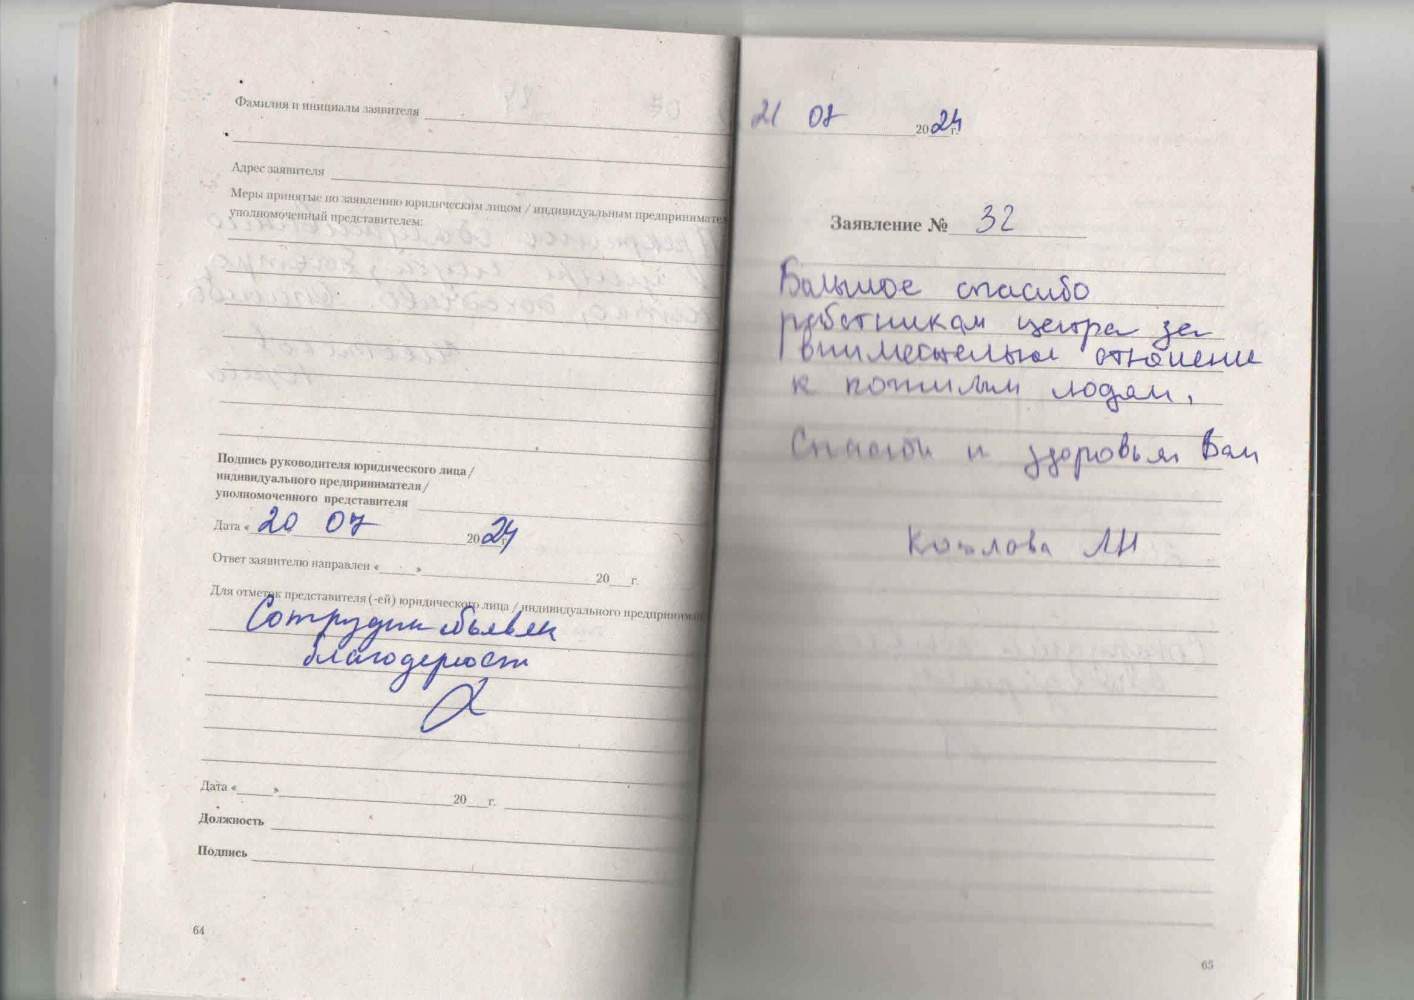 Фамилия и инициалы заявителя
Адрес заявителя
Меры принятые по заявлению юридическим лицом / индивидуальным предпринимате
уполномоченный представителем:
Подпись руководителя юридического лица /
индивидуального предпринимателя /
уполномоченного представителя
Дата « 20 07 2024 г.
Ответ заявителю направлен «____»____ 20___г.
Для отметок представителя (-ей) юридического лица / индивидуального предпринимат
благодарност
Дата «____»____ 20___г.
Должность
Подпись
64
21 07 2024 г.
Заявление № 32
Большое спасибо
работникам центра за
внимательное отношение
к пожилым людям.
Спасибо и здоровья Вам
Козлова ЛН
65